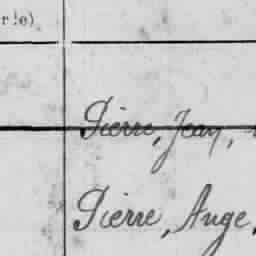 r!e)
Pierre, Jean,
Pierre, Ange,